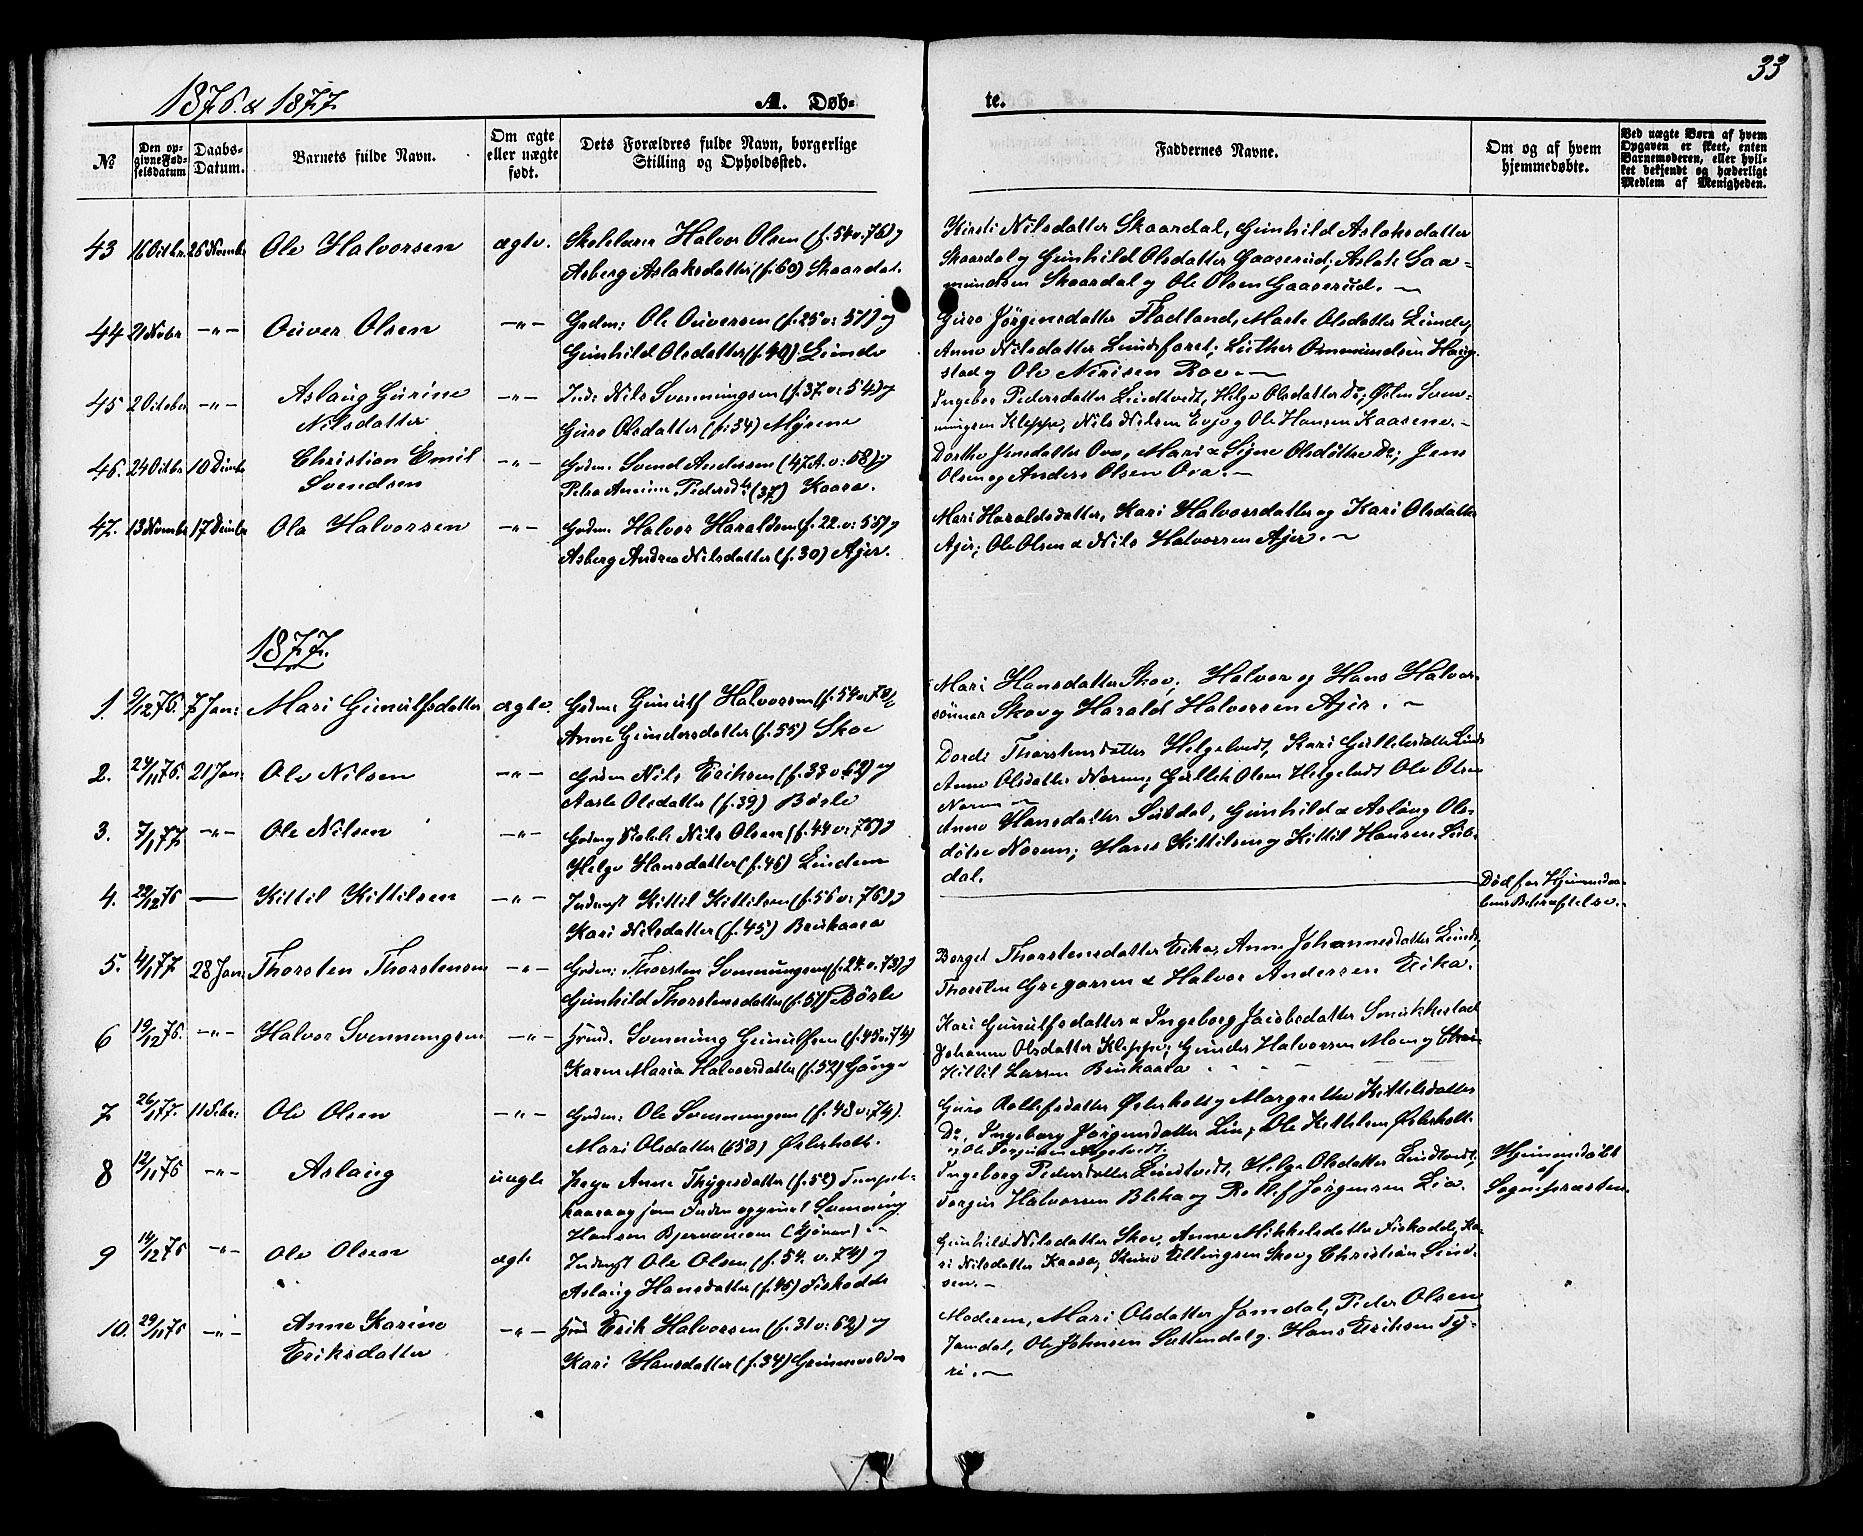 33
1876 & 1877
A. Døb-
te.
No
Den op-
givne Fød-
selsdatum
Daabs-
Datum.
Barnets fulde Navn.
Om ægte
eller uægte
født.
Dets Forældres fulde Navn, borgerlige
Stilling og Opholdssted.
Faddernes Navne.
Om og af hvem
hjemmedøbte.
Ved uægte Børn af hvem
Opgaven er skeet, enten
Barnemoderen, eller hvil-
ket bekjendt og hæderligt
Medlem af Menigheden.
43 16 Octbr. 26 Novembr Ole Halvorsen ægte. Halvor Olsen (f. 54 v. 76) og
Asberg Aslaksdatter (f. 60) Skaardal.
Kirsti Nilsdatter Skaardal, Gunhild Aslaksdatter
Skaardal og Gunhild Olsdatter Gaaserud; Aslak Gaa-
mundsen Skaardal og Ole Olsen Gaaserud. —
44 2 Novbr —"— Ouver Olsen —"— Gadm: Ole Ouversen (f. 25 v: 57) og
Gunhild Olsdatter (f. 40) Lunde
Guro Jörgensdatter Fladland, Marte Olsdatter Lunde,
Anne Nilsdatter Lundsfaret; Luther
stad og Ole Nirisen Rove —
45 2 October —"— Aslaug Gurine
Nilsdatter —"— Ind: Nils Svenningsen (f. 37 v: 54) og
Guro Olsdatter (f: 34) Myrene
Ingebor Pedersdatter Lindtvedt, Helge Olsdatter Do; Østen Sven-
ningsen Kleppe, Nils Nilsen Evje og Ole Hansen Kaasene. —
46. 24 Octbr 10 Decbr Christian Emil
Svendsen —"— Gadm. Svend Andersen (47 A. v: 68) og
Petra Pedersdtr (37) Kaasa.
Dorthe Jensdatter Ova, Mari & Signe Olsdøttre Do; Jens
Olsen og Anders Olsen Ova. —
47. 13 Novembr 17 Decbr Ole Halvorsen —"— Gadm: Halvor Haraldsen (f. 22. v: 55) og
Asberg Andrea Nilsdatter (f. 30) Ajer.
Mari Haraldsdatter, Kari Halvorsdatter og Kari Olsdatter
Ajer; Ole Olsen & Nils Halvorsen Ajer. —
1877.
1. 9/12 76. 7 Jan: Mari Gunulfsdatter ægte. Gadm: Gunulf Halvorsen (f. 54 v. 78)
Anne Gundersdatter (f. 55) Skoe
Mari Hansdatter Skoe, Halvor og Hans Halvor-
sönner Skoe og Harald Halvorsen Ajer. —
2. 24/11 76. 21 Jan: Ole Nilsen —"— Gadm Nils Eriksen (f. 38 v. 62) og
Aaste Olsdatter (f. 39) Børle
Dordi Thorstensdatter Helgetvedt, Kari Gulleksdatter Linds
Anne Olsdatter Norum; Gullik Olsen Helgetvedt Ole Olsen
Norum —
3. 7/1 77 —"— Ole Nilsen —"— Nils Olsen (f. 44 v: 75) og
Helge Hansdatter (f. 46) Lindem
Anne Hansdatter Lubdal, Gunhild & Aslaug Ols-
døtre Norum; Hans Kittilsen og Kittil Hansen Lub-
dal.
4. 29/12 76 — Kittil Kittilsen —"— Inderst Kittil Kittilsen (f. 56 v: 76) og
Kari Nilsdatter (f. 45) Brukaasa
Død før Hjemmedaa-
bens Bekræftelse. —
5. 4/1 77 28 Jan. Thorsten Thorstensen —"— Gadm: Thorsten Svenningsen (f. 24. v. 73) og
Gunhild Thorstensdatter (f. 51) Børle
Borget Thorstensdatter Eika, Anne Johannesdatter Lunde,
Thorsten Gregarsen & Halvor Andersen Eika.
6 19/12 76. —"— Halvor Svenningsen —"— Svenning Gunulfsen (f. 45 v. 74)
Karen Maria Halvorsdatter (f. 52)
Kari Gunulfsdatter & Ingeborg Jacobsdatter Smukkestad
Johanne Olsdatter Kleppe; Gunder Halvorsen Moen og
Kittil Larsen Brukaasa
7 26/1 77. 11 Febr: Ole Olsen —"— Gadm: Ole Svenningsen (f. 48 v: 74).
Mari Olsdatter (f. 52) Østerholt.
Guro Rollefsdatter Østerholt og Margrethe Kittelsdatter
Do, Ingeborg Jørgensdatter Lia, Ole Kittilsen Østerholt
8 12/11 76 —"— Aslaug uægte Pige Anne Thygesdatter (f. 52) Tinget-
kaasa og som Fader opgivet Svenning
Hansen Bjervamoen
Ingeborg Pedersdatter Lindtvedt, Helge Olsdatter Lindtvedt,
Torgus Halvorsen Bleka og Rollef Jørgensen Lia.
Hjemmedøbt
af
Sognepræsten.
9 14/12 76 —"— Ole Olsen ægte Inderst Ole Olsen (f. 54. v. 74) og
Aslaug Hansdatter (f. 45) Fiskodde
Gunhild Nilsdatter Skoe, Anne Mikkelsdatter Fiskodde, Ka-
ri Nilsdatter Kaasa; Ellingsen Skoe og Christian Lind-
sen. —
10. 29/11 76 —"— Anne Karine
Eriksdatter —"— Erik Halvorsen (f. 31 v: 62) og
Kari Hansdatter (f. 34)
Moderen, Mari Olsdatter Jamdal, Peder Olsen
Jamdal, Ole Johnsen Sattendal og Hans Eriksen Ty-
ri. —